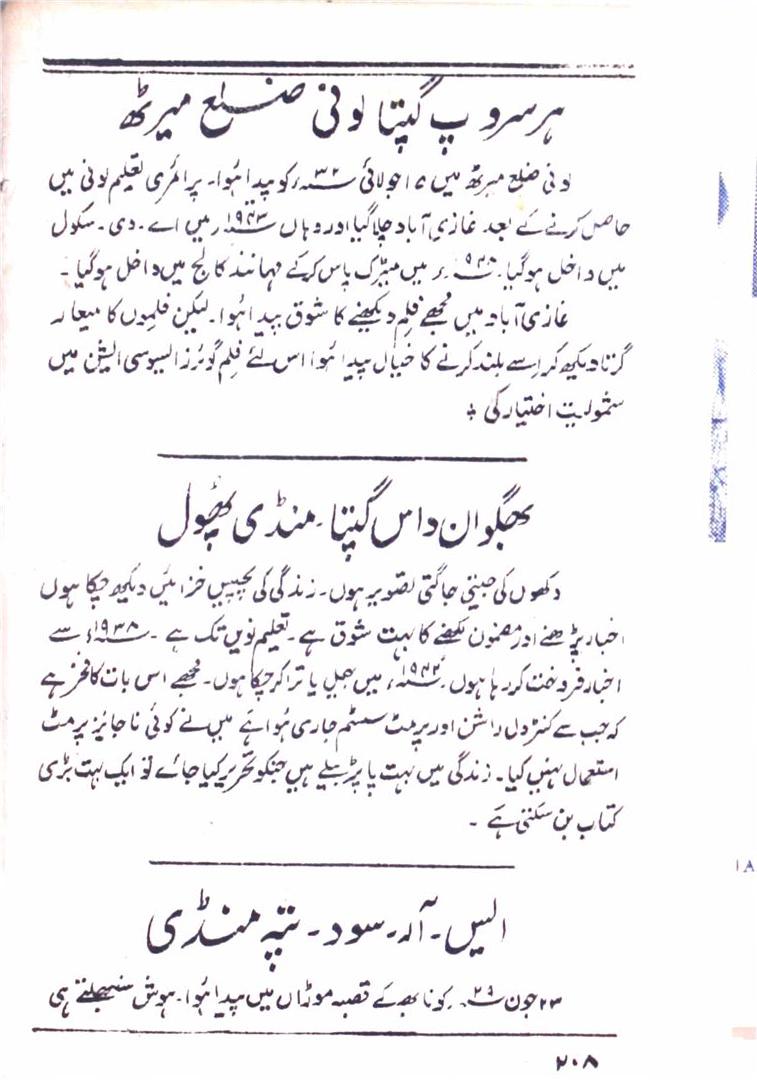 ہرسروپ گپتا لونی ضلع میرٹھ
لونی ضلع میرٹھ میں ۱۵ جولائی ۳۲ء کو پیدا ہُوا۔ پرائمری تعلیم لونی میں
حاصل کرنے کے بعد غازی آباد چلا گیا اور وہاں ۱۹۴۳ء میں اے۔ دی۔ سکول
میں داخل ہو گیا۔ ۱۹۴۸ء میں میٹرک پاس کر کے مہانند کالج میں داخل ہو گیا۔
غازی آباد میں مجھے فلم دیکھنے کا شوق پیدا ہُوا۔ لیکن فلموں کا معیار
گرتا دیکھ کر اِسے بلند کرنے کا خیال پیدا ہُوا اس لئے فلم گوئرز ایسوسی ایشن میں
شمولیت اختیار کی ؛
بھگوان داس گپتا۔ منڈی پھُول
دکھوں کی جیتی جاگتی تصویر ہوں۔ زندگی کی پچیس خزائیں دیکھ چکا ہوں
اخبار پڑھنے اور مضمون لکھنے کا بہت شوق ہے۔ تعلیم نویں تک ہے۔ ۱۹۳۸ء سے
اخبار فروخت کر رہا ہوں۔ ۱۹۴۲ء میں جیل یاترا کر چکا ہوں۔ مجھے اس بات کا فخر ہے
کہ جب سے کنٹرول راشن اور پرمٹ سسٹم جاری ہُوا ہے میں نے کوئی ناجائز پرمٹ
استعمال نہیں کیا۔ زندگی میں بہت پاپڑ بیلے ہیں جنکو تحریر کیا جائے تو ایک بہت بڑی
کتاب بن سکتی ہے ۔
ایس۔ آر۔ سود۔ تپہ منڈی
۲۳ جون ۲۹ء کو نابھہ کے قصبہ موڑاں میں پیدا ہُوا۔ ہوش سنبھلتے ہی
۲۰۸